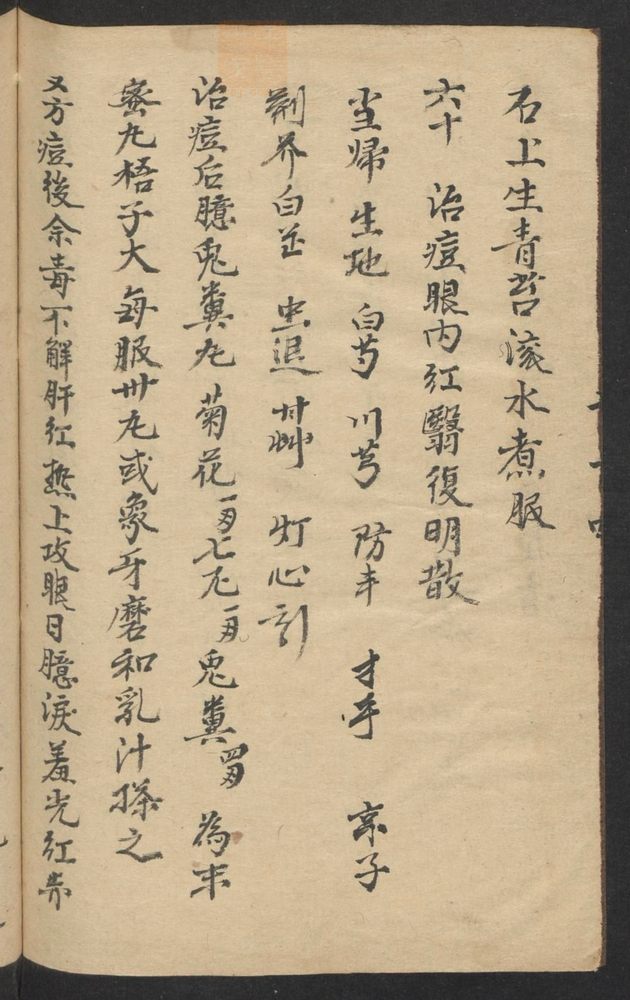 石上生青苔滚水煮服
六十 治痘眼内红翳復明散
当歸 生地 白芍 川芎 防丰 才乎 京子
荆芥 白芷 虫退 甘草 灯心引
治痘后臆兎糞丸 菊花一两 七厄一两 兎糞四两 為末
蜜丸梧子大每服卅丸或象牙磨和乳汁搽之
又方痘後余毒不解肝红熱上攻眼目臆淚羞光红